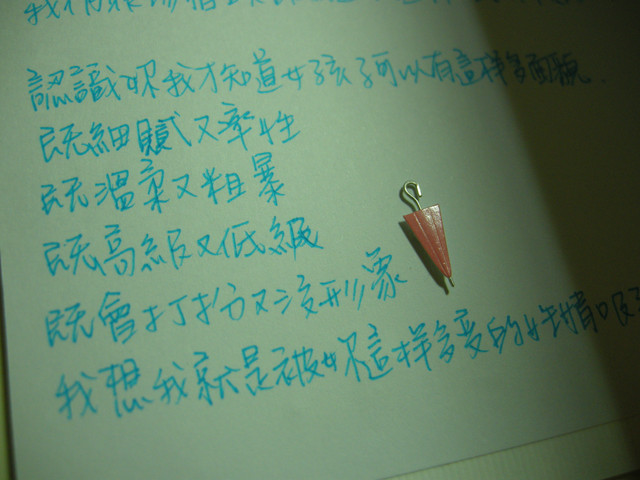 認識妳我才知道女孩子可以有這樣多面貌.
既細膩又率性
既溫柔又粗暴
既高級又低級
既會打扮又沒形象
我想我就是被妳這樣多變的性情吸